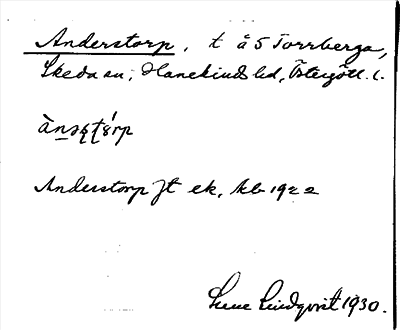 Anderstorp, t å 5 Torrberga,
Skeda sn; Hanekinds hd, Östergötl. l.
Anderstorp Jt ek. kb 1922
Sven Lindqvist 1930.